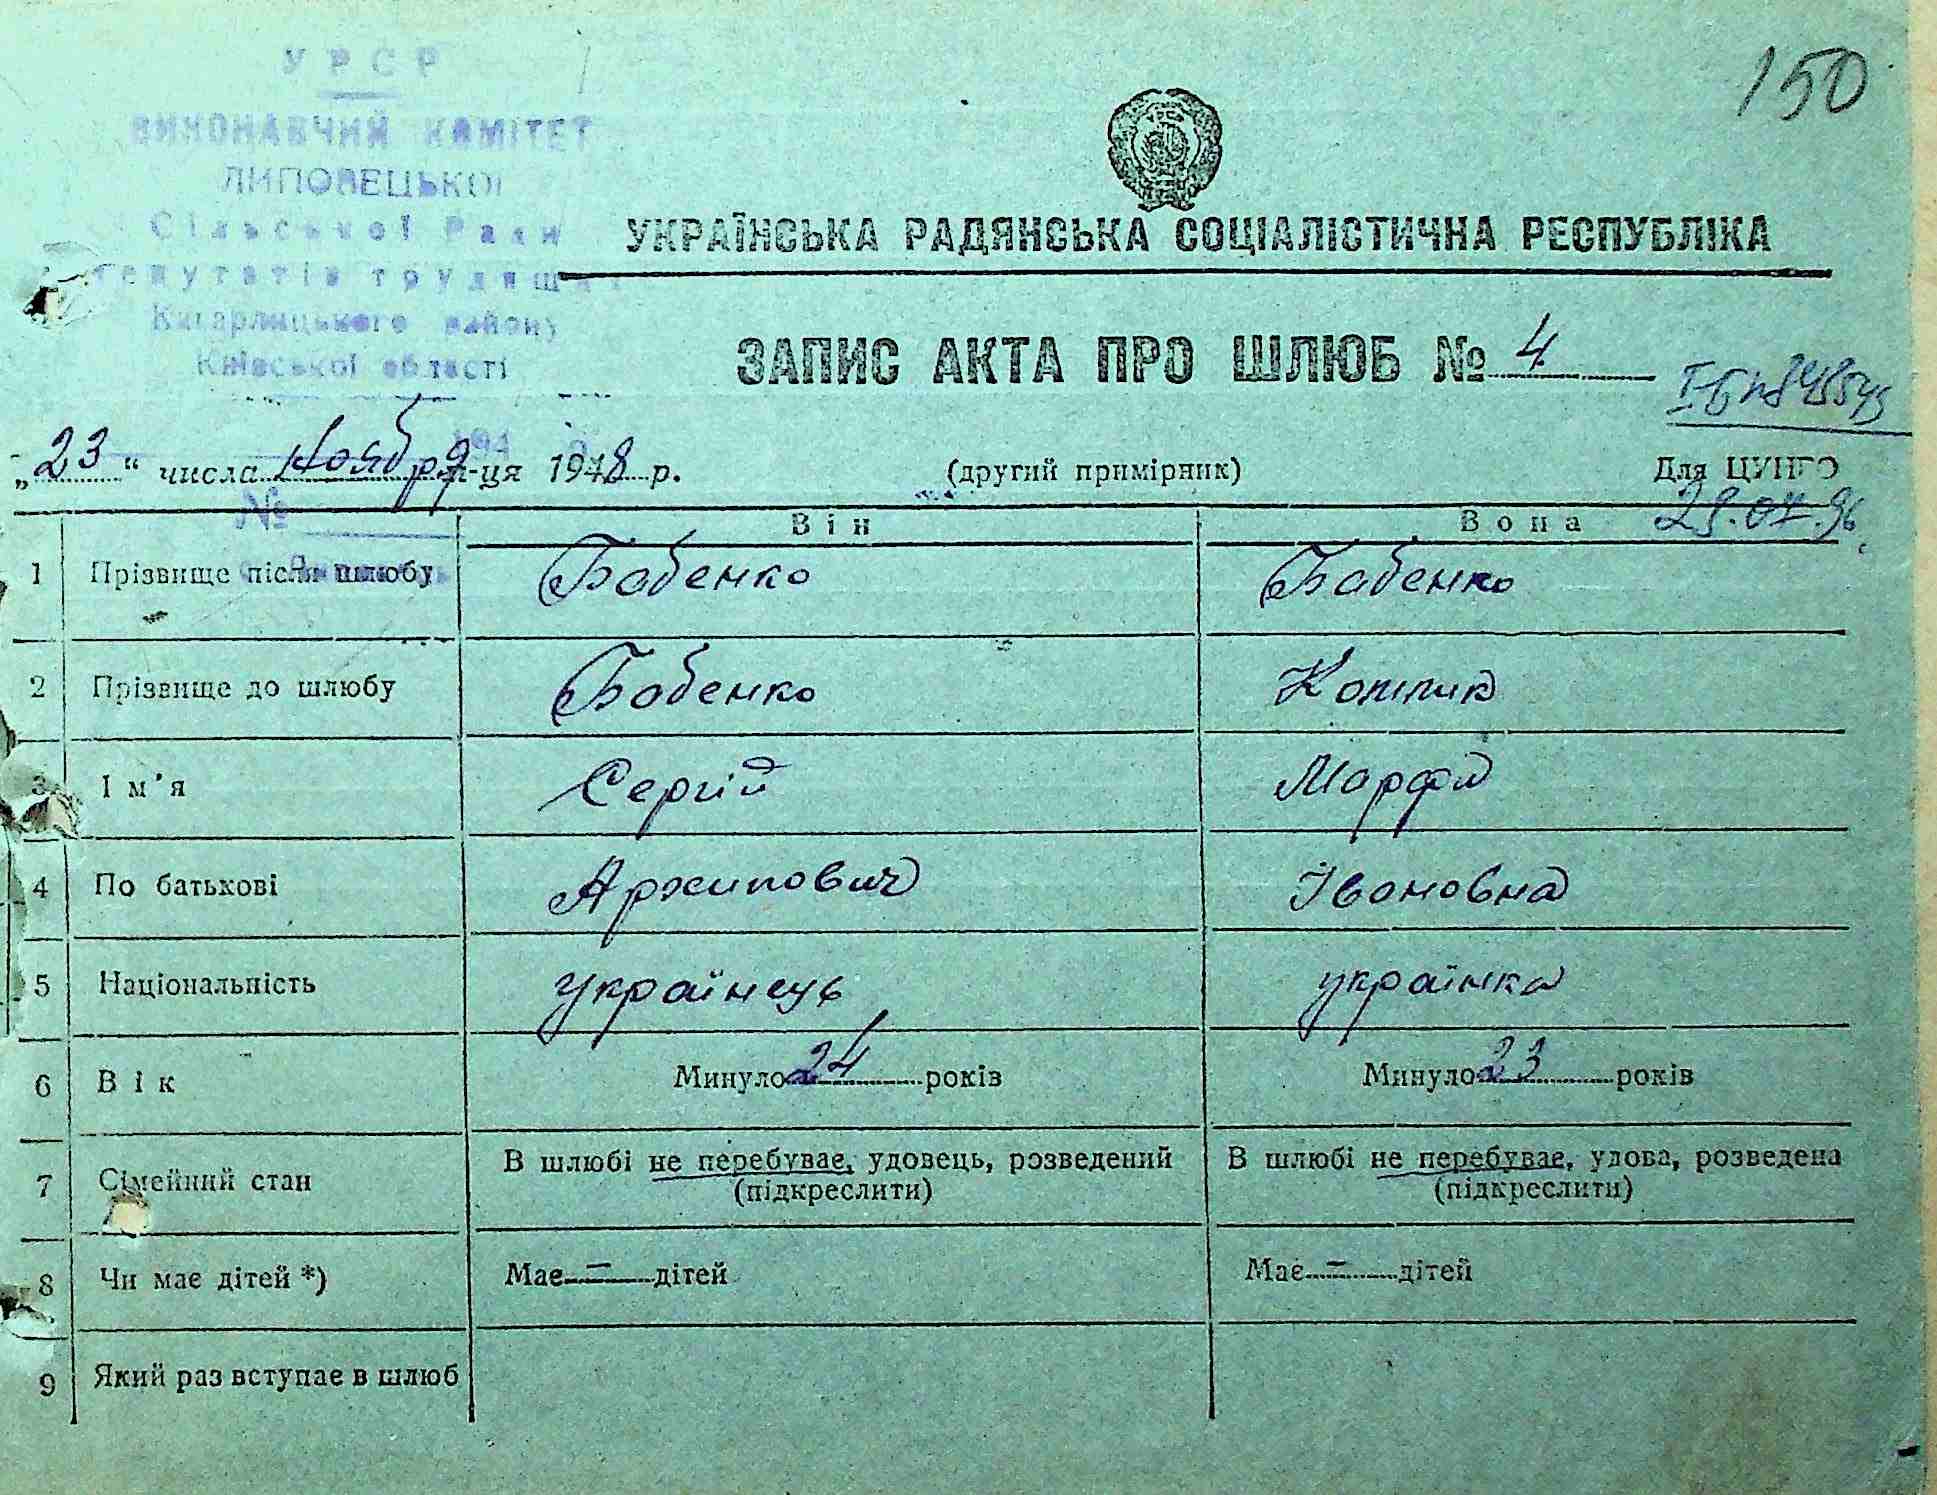 150
УРСР
ВИКОНАВЧИЙ КОМІТЕТ
ЛИПОВЕЦЬКОЇ
Сільської Ради
депутатів трудящих
Кагарлицького району
Київської області
УКРАЇНСЬКА РАДЯНСЬКА СОЦІАЛІСТИЧНА РЕСПУБЛІКА
ЗАПИС АКТА ПРО ШЛЮБ № 4
„23“ числа Ноября м-ця 1948 р. (другий примірник) Для ЦУНГО
№
Він Вона
1 Прізвище після шлюбу Бабенко Бабенко
2 Прізвище до шлюбу Бабенко
3 Ім'я Сергій Марфа
4 По батькові Архипович Івановна
5 Національність українець українка
6 Вік Минуло 24 років Минуло 23 років
7 Сімейний стан В шлюбі не перебуває, удовець, розведений В шлюбі не перебуває, удова, розведена
(підкреслити) (підкреслити)
8 Чи має дітей *) Має – дітей Має – дітей
9 Який раз вступає в шлюб